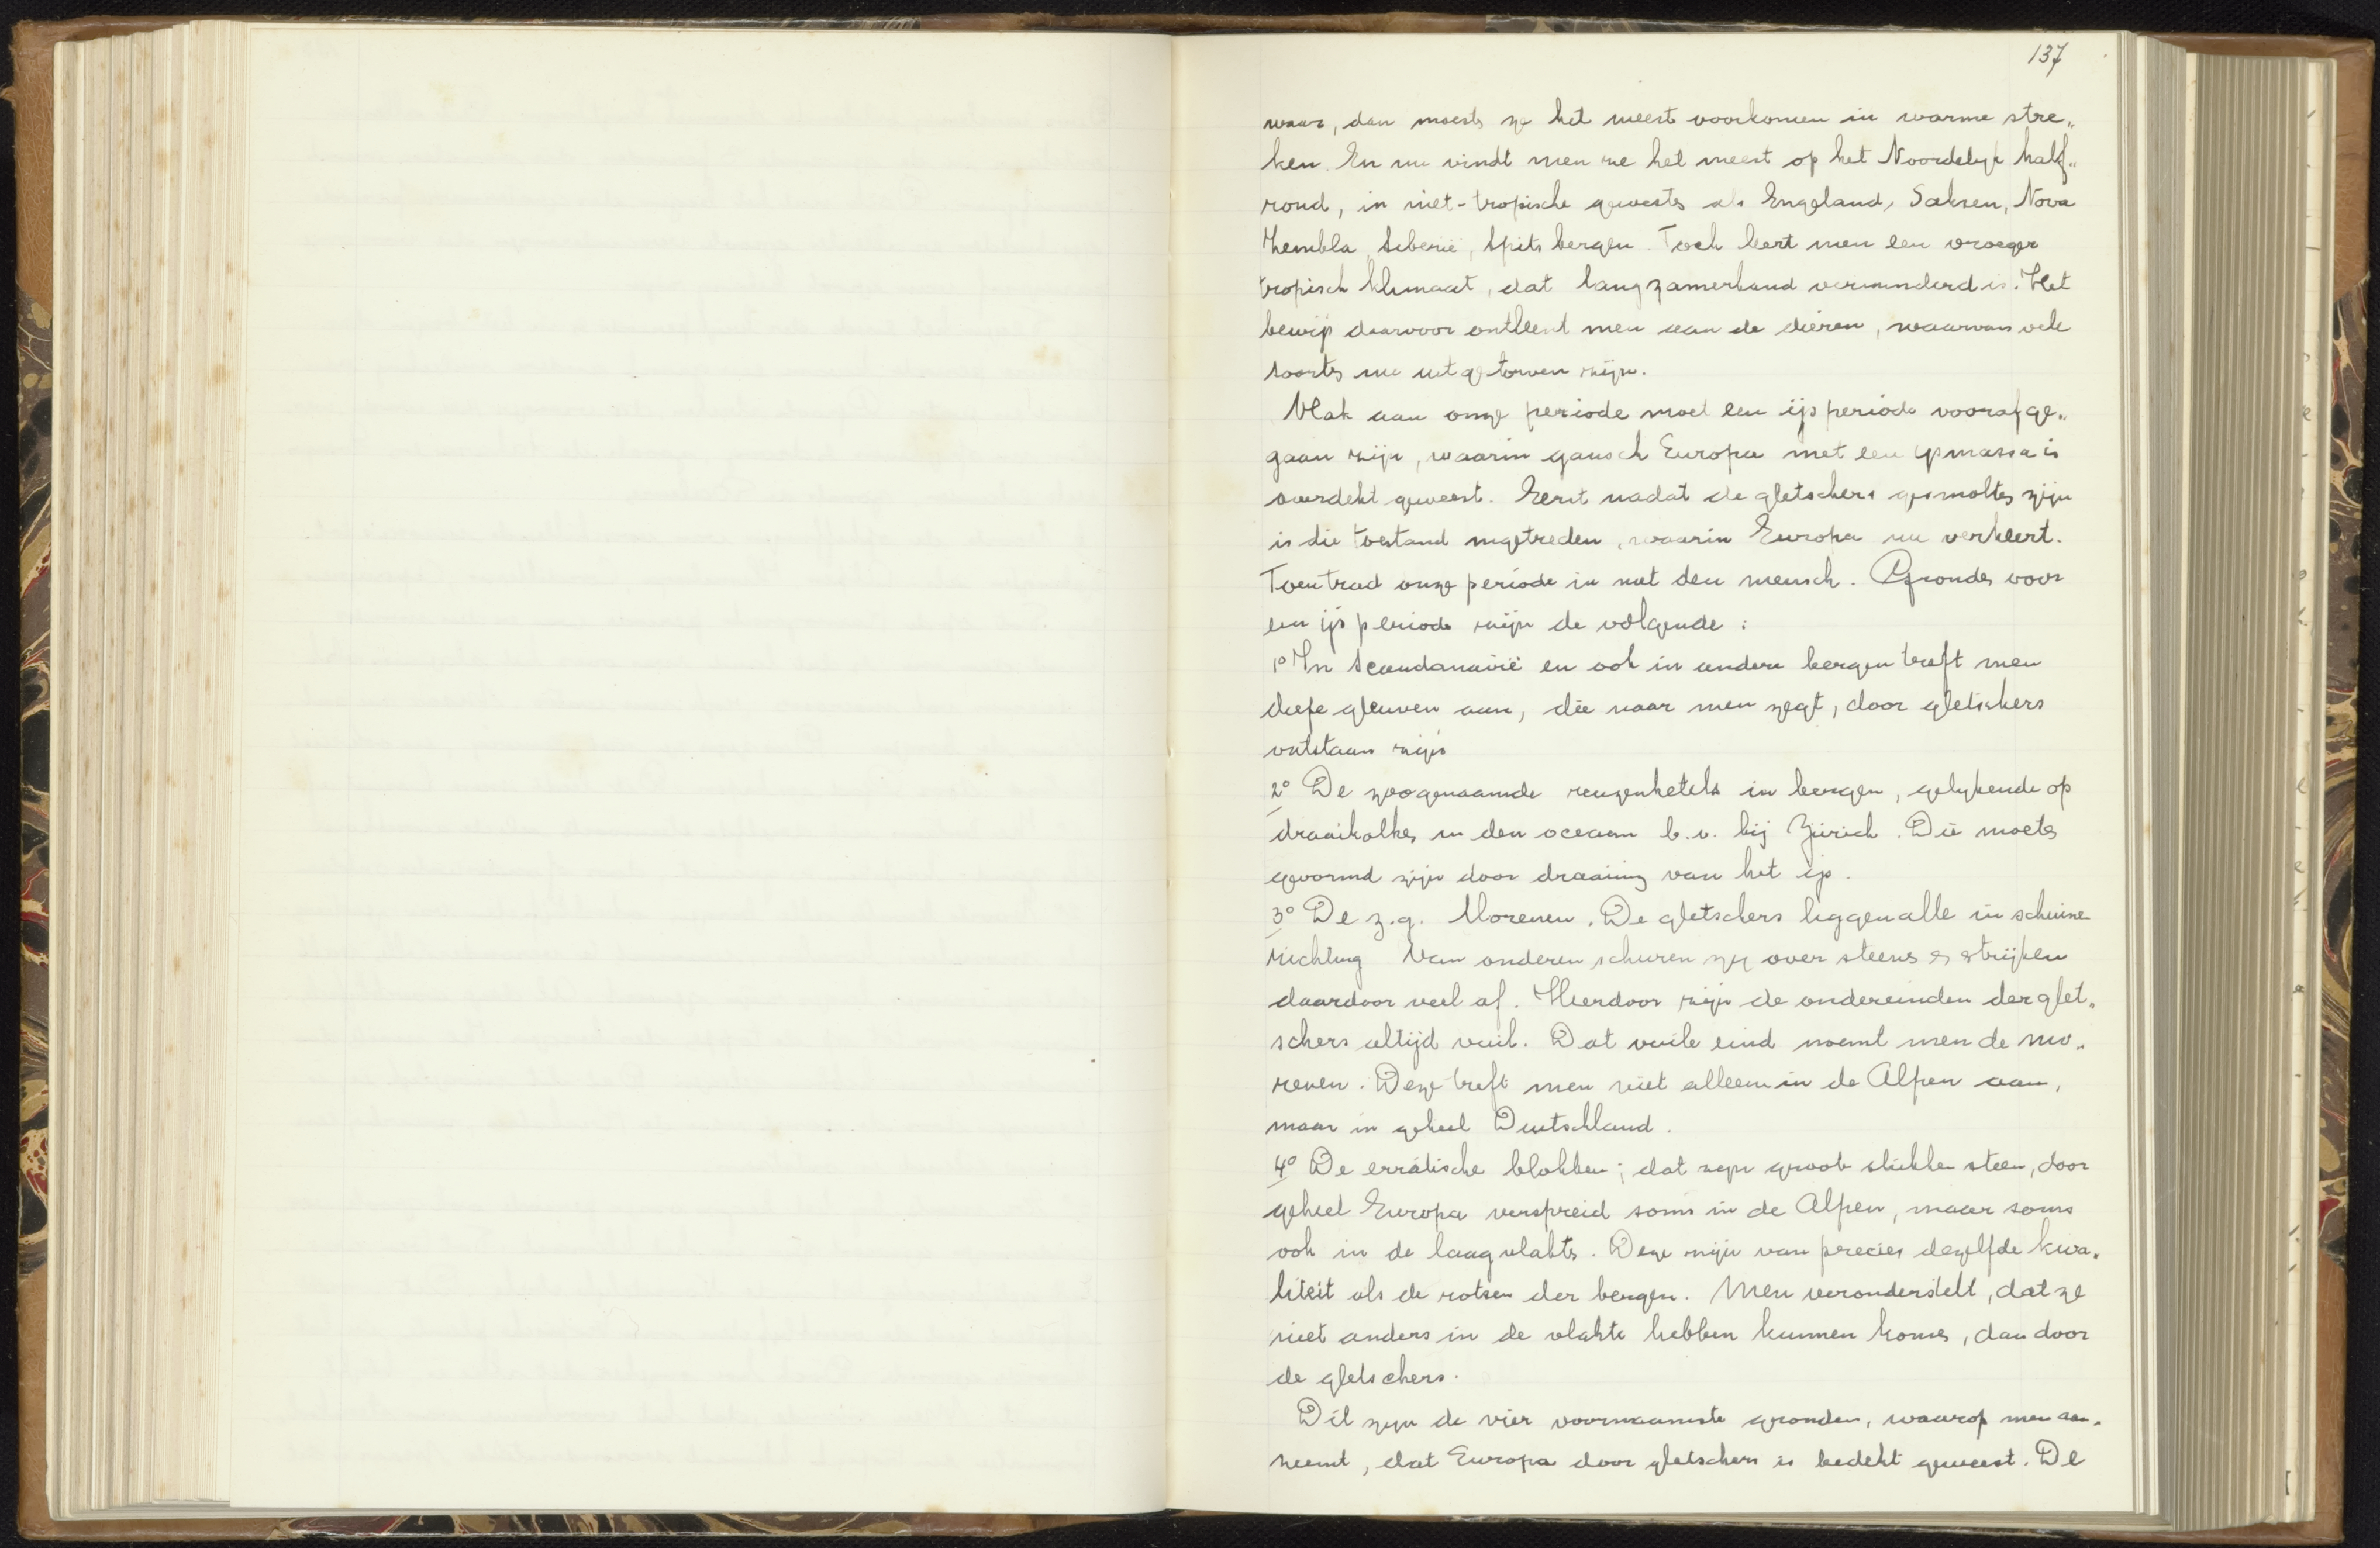 137
waar, dan moesten ze het meest voorkomen in warme stre„
ken. En nu vindt men ze het meest op het Noordelijk half„
rond, in niet-tropische gewesten als Engeland, Saksen, Nova
Zembla, Siberië, Spitsbergen. Toch leert men een vroeger
tropisch klimaat, dat langzamerhand verminderd is. Het
bewijs daarvoor ontleent men aan de dieren, waarvan vele
soorten nu uitgestorven zijn.
Vlak aan onze periode moet een ijsperiode voorafge„
gaan zijn, waarin gansch Europa met een ijsmassa is
overdekt geweest. Eerst nadat de gletschers gesmolten zijn
is die toestand ingetreden, waarin Europa nu verkeert.
Toen trad onze periode in met den mensch. Gronden voor
een ijsperiode zijn de volgende:
1° In Scandanavië en ook in andere bergen treft men
diepe gleuven aan, die naar men zegt, door gletschers
ontstaan zijn
2° De zoogenaamde reuzenketels in bergen, gelijkende op
draaikolken in den oceaan b.v. bij Zürich. Die moeten
gevormd zijn door draaiing van het ijs.
3° De z.g. Morenen. De gletschers liggen alle in schuine
richting Van onderen schuren zij over steenen en strijken
daardoor veel af. Hierdoor zijn de ondereinden der glet„
schers altijd vuil. Dat vuile eind noemt men de mo„
renen. Deze treft men niet alleen in de Alpen aan,
maar in geheel Duitschland.
4° De erratische blokken; dat zijn groote stukken steen, door
geheel Europa verspreid soms in de Alpen, maar soms
ook in de laagvlakte. Deze zijn van precies dezelfde kwa„
liteit als de rotsen der bergen. Men veronderstelt, dat ze
niet anders in de vlakte hebben kunnen komen, dan door
de gletschers.
Dit zijn de vier voornaamste gronden, waarop men aan„
neemt, dat Europa door gletschers is bedekt geweest. De